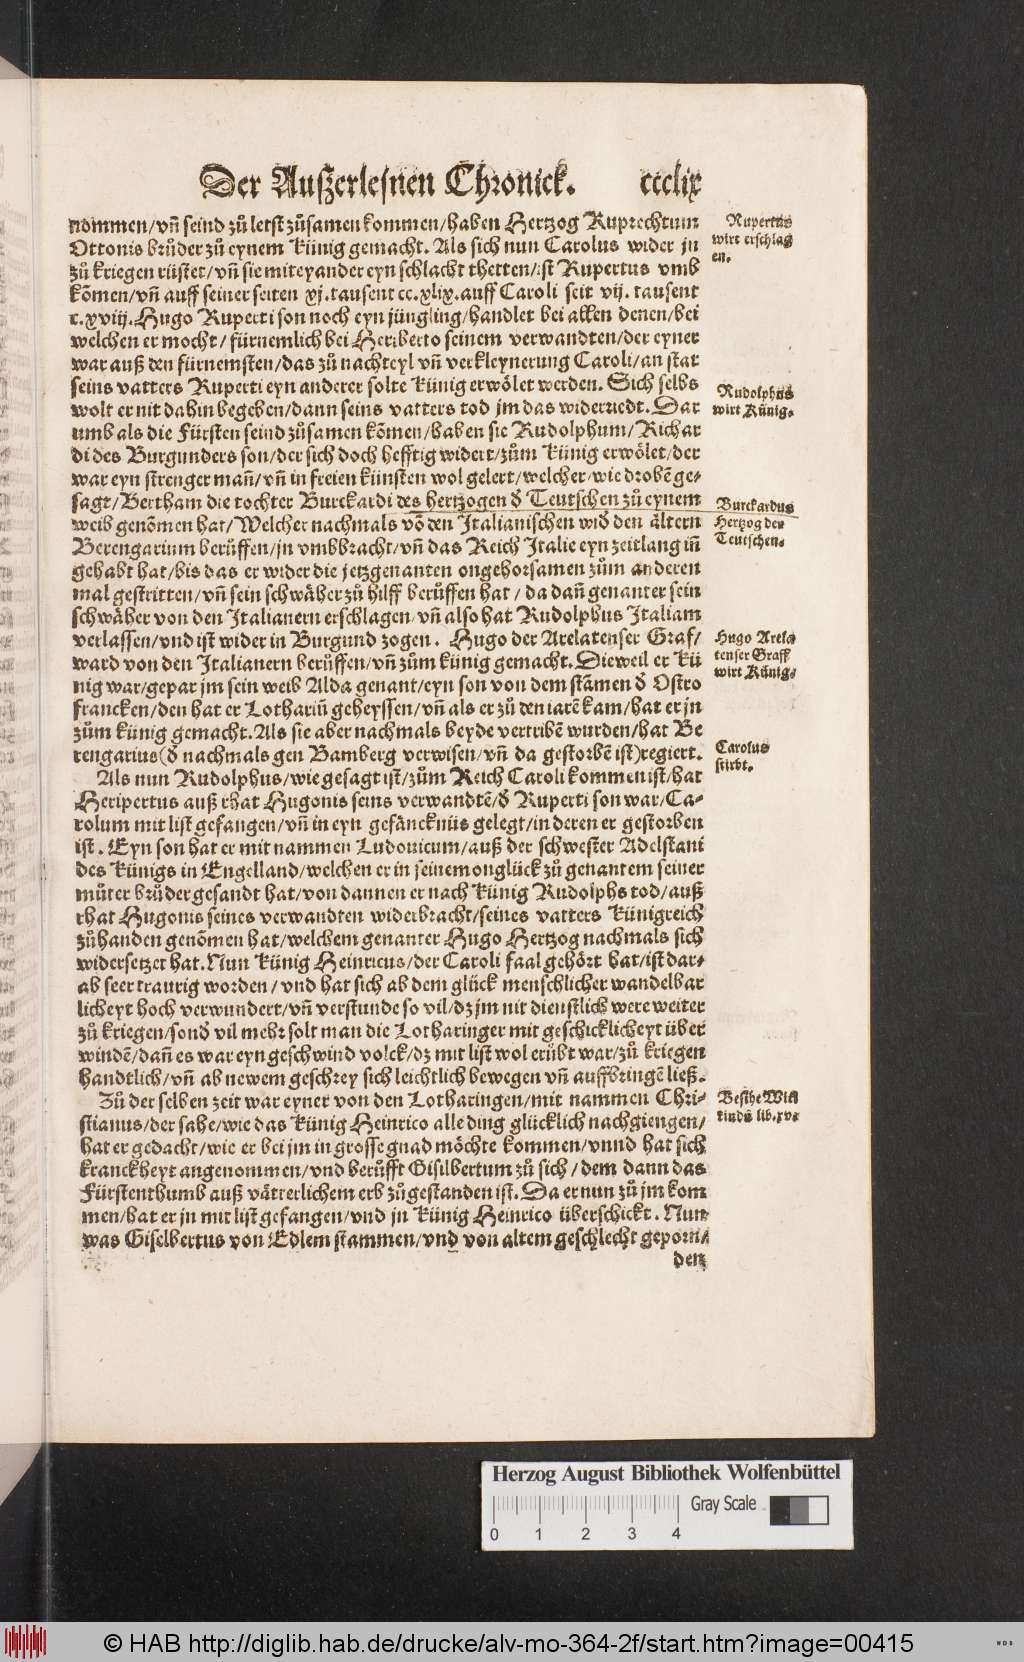 Der Außerlesnen Chronick. ccclix
nommen/vñ seind zů letst zůsamen kommen/haben Hertzog Ruprechtum
Ottonis brůder zů eynem Künig gemacht. Als sich nun Carolus wider jn
zů kriegen rüstet/vñ sie miteynander eyn schlacht thetten/ist Rupertus vmb
kõmen/vñ auff seiner seiten xj.tausent cc.xlix.auff Caroli seit vij. tausent
c.xviij.Hugo Ruperti son noch eyn jüngling/handlet bei allen denen/bei
welchen er mocht/fürnemlich bei Heriberto seinem verwandten/der eyner
war auß den fürnemsten/das zů nachteyl vñ verkleynerung Caroli/an stat
seins vatters Ruperti eyn anderer solte Künig erwölet werden. Sich selbs
wolt er nit dahin begeben/dann seins vatters tod jm das widerriedt. Dar
umb als die Fürsten seind zůsamen kõmen/haben sie Rudolphum/Richar
di des Burgunders son/der sich doch hefftig widert/zům Künig erwölet/der
war eyn strenger mañ/vñ in freien künsten wol gelert/welcher/wie drobẽ ge-
sagt/Bertham die tochter Burckardi des hertzogen đ Teutschen zů eynem
weib genõmen hat/Welcher nachmals võ den Italianischen wiđ den ältern
Berengarium berůffen/jn vmbbracht/vñ das Reich Italie eyn zeitlang iñ
gehabt hat/bis das er wider die jetzgenanten ongehorsamen zům anderen
mal gestritten/vñ sein schwäher zů hilff berůffen hat/da dañ genanter sein
schwäher von den Italianern erschlagen/vñ also hat Rudolphus Italiam
verlassen/vnd ist wider in Burgund zogen. Hugo der Arelatenser Graf/
ward von den Italianern berůffen/vñ zům künig gemacht. Dieweil er Kü
nig war/gepar jm sein weib Alda genant/eyn son von dem stãmen đ Ostro
francken/den hat er Lothariũ geheyssen/vñ als er zů den iarẽ kam/hat er jn
zům künig gemacht. Als sie aber nachmals beyde vertribẽ wurden/hat Be
rengarius(đ nachmals gen Bamberg verwisen/vñ da gestorbẽ ist)regiert.
Als nun Rudolphus/wie gesagt ist/zům Reich Caroli kommen ist/hat
Heripertus auß rhat Hugonis seins verwandtẽ/đ Ruperti son war/Ca-
rolum mit list gefangen/vñ in eyn gefäncknüs gelegt/in deren er gestorben
ist. Eyn son hat er mit nammen Ludouicum/auß der schwester Adelstani
des Künigs in Engelland/welchen er in seinem onglück zů genantem seiner
můter brůder gesandt hat/von dannen er nach Künig Rudolphs tod/auß
rhat Hugonis seines verwandten widerbracht/seines vatters Künigreich
zůhanden genõmen hat/welchem genanter Hugo Hertzog nachmals sich
widersetzet hat. Nun Künig Heinricus/der Caroli faal gehört hat/ist dar-
ab seer traurig worden/vnd hat sich ab dem glück menschlicher wandelbar
licheyt hoch verwundert/vñ verstunde so vil/dz jm nit dienstlich were weiter
zů kriegen/sonđ vil mehr solt man die Lotharinger mit geschicklicheyt über
windẽ/dañ es war eyn geschwind volck/dz mit list wol erübt war/zů kriegen
handtlich/vñ ab newem geschrey sich leichtlich bewegen vñ auffbringẽ ließ.
Zů der selben zeit war eyner von den Lotharingen/mit nammen Chri-
stianus/der sahe/wie das Künig Heinrico alle ding glücklich nachgiengen/
hat er gedacht/wie er bei jm in grosse gnad möchte kommen/vnnd hat sich
kranckheyt angenommen/vnd berůfft Giselbertum zů sich/dem dann das
Fürstenthumb auß vätterlichem erb zůgestanden ist. Da er nun zů jm kom
men/hat er jn mit list gefangen/vnd jn Künig Heinrico überschickt. Nun
was Giselbertus von Edlem stammen/vnd von altem geschlecht geporn/
den
Rupertus
wirt erschlag
en.
Rudolphus
wirt Künig.
Burckardus
Hertzog der
Teutschen.
Hugo Arela
tenser Graff
wirt Künig.
Carolus
stirbt.
Besihe Witi
kindũ lib.xv.
Herzog August Bibliothek Wolfenbüttel
Gray Scale
0 1 2 3 4
© HAB http://diglib.hab.de/drucke/alv-mo-364-2f/start.htm?image=00415